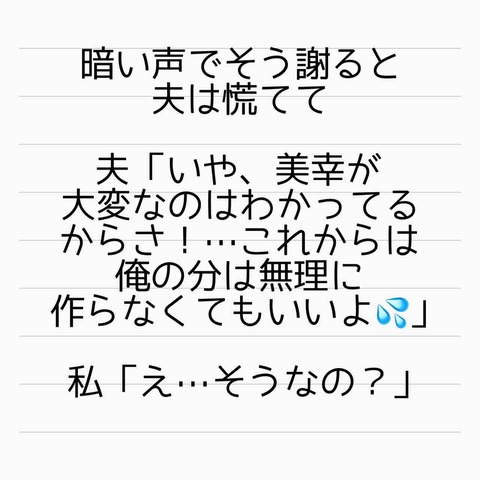 暗い声でそう謝ると
夫は慌てて
夫「いや、美幸が
大変なのはわかってる
からさ！…これからは
俺の分は無理に
作らなくてもいいよ💦」
私「え…そうなの？」